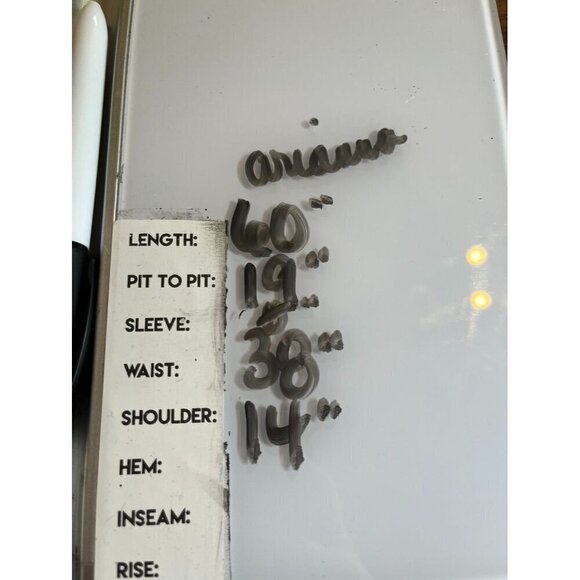 arianna
LENGTH: 60"
PIT TO PIT: 19"
SLEEVE:
WAIST: 38"
SHOULDER: 14"
HEM:
INSEAM:
RISE: